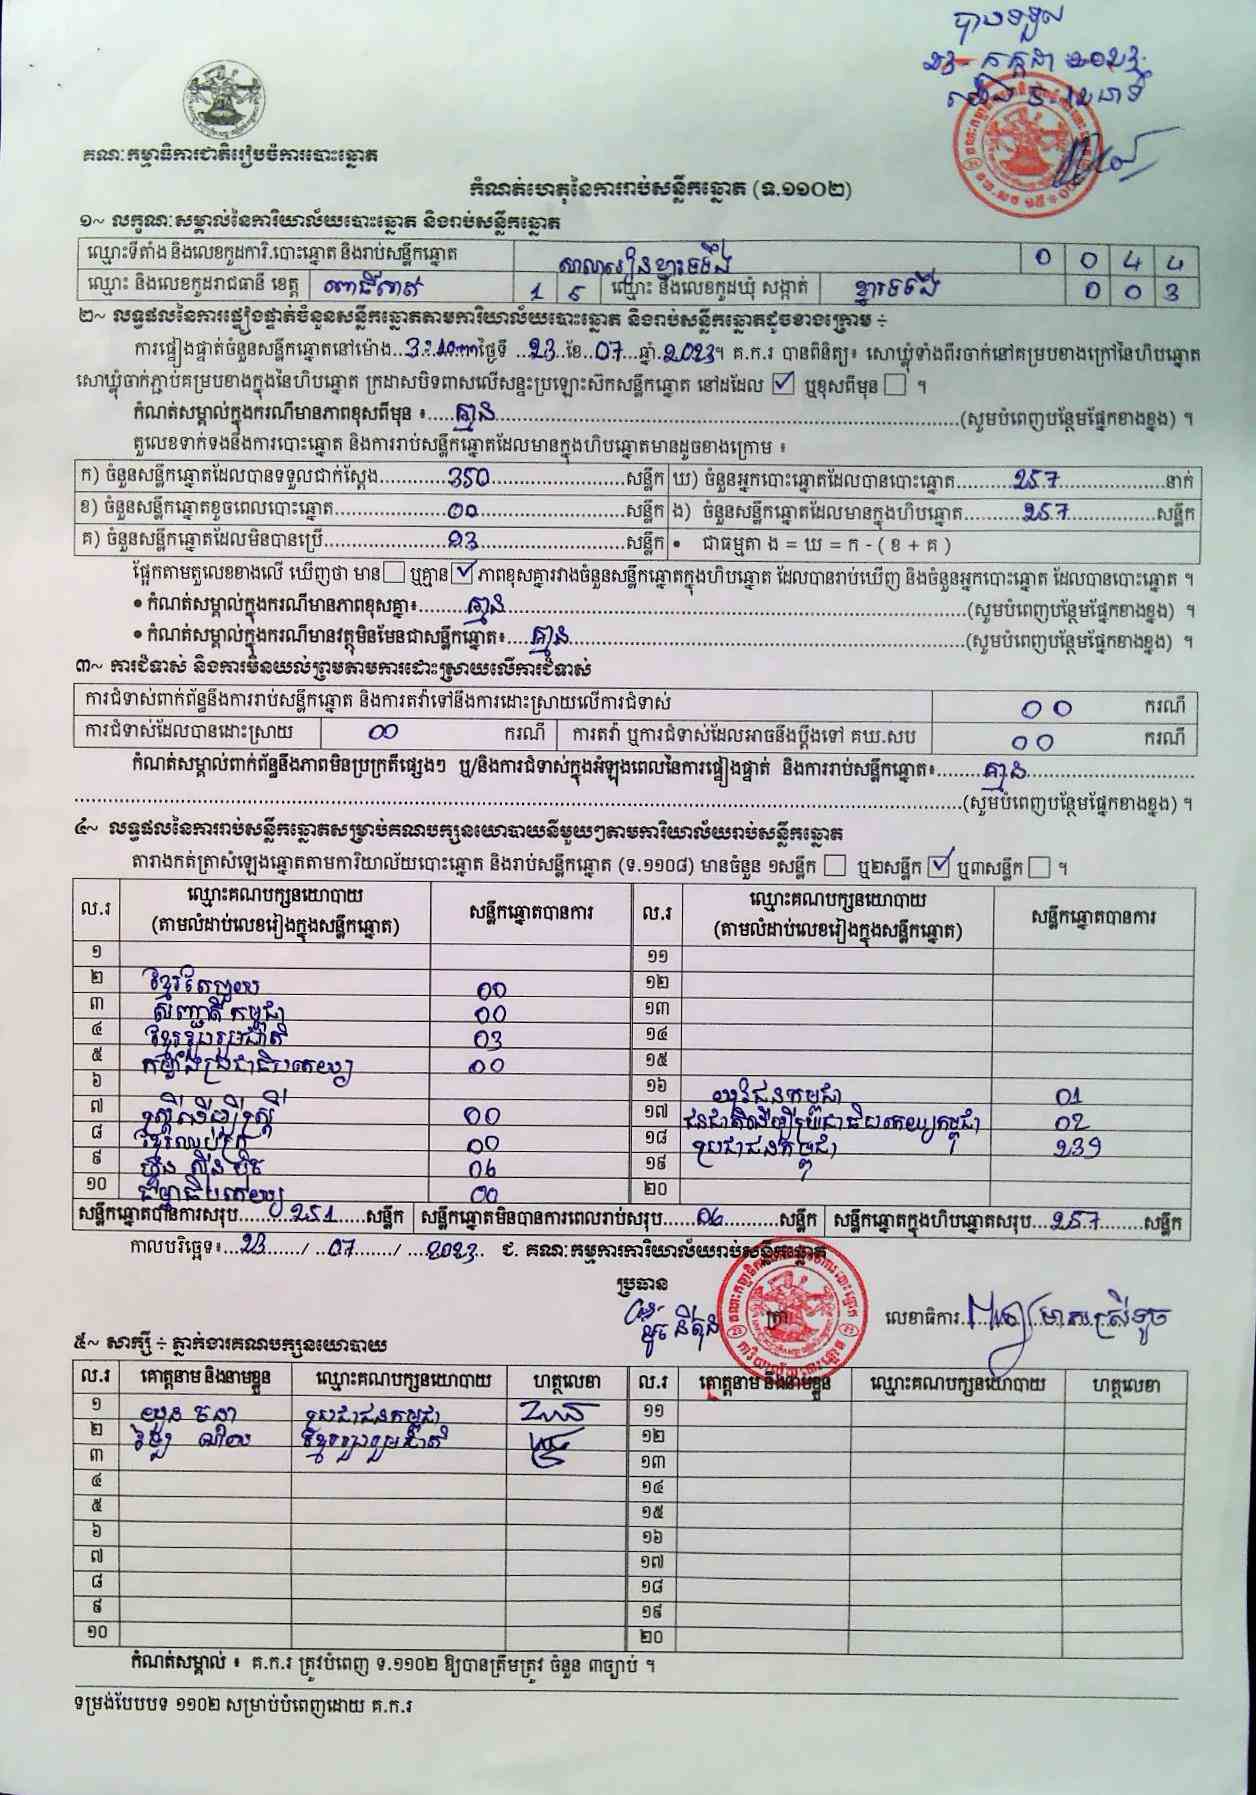 បានទទួល
២៣ កក្កដា ២០២៣
គណៈកម្មាធិការជាតិរៀបចំការបោះឆ្នោត
កំណត់ហេតុនៃការរាប់សន្លឹកឆ្នោត (ទ.១១០២)
១~ លក្ខណៈសម្គាល់នៃការិយាល័យបោះឆ្នោត និងរាប់សន្លឹកឆ្នោត
ឈ្មោះទីតាំង និងលេខកូដការិ.បោះឆ្នោត និងរាប់សន្លឹកឆ្នោត សាលារៀនខ្នារទទឹង 0 0 4 4
ឈ្មោះ និងលេខកូដរាជធានី ខេត្ត ពោធិ៍សាត់ 1 5 ឈ្មោះ និងលេខកូដឃុំ សង្កាត់ ខ្នារទទឹង 0 0 3
២~ លទ្ធផលនៃការផ្ទៀងផ្ទាត់ចំនួនសន្លឹកឆ្នោតតាមការិយាល័យបោះឆ្នោត និងរាប់សន្លឹកឆ្នោតដូចខាងក្រោម ÷
ការផ្ទៀងផ្ទាត់ចំនួនសន្លឹកឆ្នោតនៅម៉ោង...ថ្ងៃទី ...23...ខែ...07...ឆ្នាំ.2023។ គ.ក.រ បានពិនិត្យ៖ សោឃ្លុំទាំងពីរចាក់នៅគម្របខាងក្រៅនៃហិបឆ្នោត
សោឃ្លុំចាក់ភ្ជាប់គម្របខាងក្នុងនៃហិបឆ្នោត ក្រដាសបិទពាសលើសន្ទះប្រឡោះស៊កសន្លឹកឆ្នោត នៅដដែល ☑ ឬខុសពីមុន ☐ ។
កំណត់សម្គាល់ក្នុងករណីមានភាពខុសពីមុន ៖.....គ្មាន.....(សូមបំពេញបន្ថែមផ្នែកខាងខ្នង) ។
តួលេខទាក់ទងនឹងការបោះឆ្នោត និងការរាប់សន្លឹកឆ្នោតដែលមានក្នុងហិបឆ្នោតមានដូចខាងក្រោម ៖
ក) ចំនួនសន្លឹកឆ្នោតដែលបានទទួលជាក់ស្តែង.....350.....សន្លឹក ឃ) ចំនួនអ្នកបោះឆ្នោតដែលបានបោះឆ្នោត.....257.....នាក់
ខ) ចំនួនសន្លឹកឆ្នោតខូចពេលបោះឆ្នោត.....00.....សន្លឹក ង) ចំនួនសន្លឹកឆ្នោតដែលមានក្នុងហិបឆ្នោត.....257.....សន្លឹក
គ) ចំនួនសន្លឹកឆ្នោតដែលមិនបានប្រើ.....93.....សន្លឹក • ជាធម្មតា ង = ឃ = ក - ( ខ + គ )
ផ្អែកតាមតួលេខខាងលើ ឃើញថា មាន ☐ ឬគ្មាន ☑ ភាពខុសគ្នារវាងចំនួនសន្លឹកឆ្នោតក្នុងហិបឆ្នោត ដែលបានរាប់ឃើញ និងចំនួនអ្នកបោះឆ្នោត ដែលបានបោះឆ្នោត ។
• កំណត់សម្គាល់ក្នុងករណីមានភាពខុសគ្នា៖.....គ្មាន.....(សូមបំពេញបន្ថែមផ្នែកខាងខ្នង) ។
• កំណត់សម្គាល់ក្នុងករណីមានវត្ថុមិនមែនជាសន្លឹកឆ្នោត៖.....គ្មាន.....(សូមបំពេញបន្ថែមផ្នែកខាងខ្នង) ។
៣~ ការជំទាស់ និងការមិនយល់ព្រមតាមការដោះស្រាយលើការជំទាស់
ការជំទាស់ពាក់ព័ន្ធនឹងការរាប់សន្លឹកឆ្នោត និងការតវ៉ាទៅនឹងការដោះស្រាយលើការជំទាស់ 00 ករណី
ការជំទាស់ដែលបានដោះស្រាយ 00 ករណី ការតវ៉ា ឬការជំទាស់ដែលអាចនឹងប្តឹងទៅ គឃ.សប 00 ករណី
កំណត់សម្គាល់ពាក់ព័ន្ធនឹងភាពមិនប្រក្រតីផ្សេងៗ ឬ/និងការជំទាស់ក្នុងអំឡុងពេលនៃការផ្ទៀងផ្ទាត់ និងការរាប់សន្លឹកឆ្នោត៖.....គ្មាន.....
.....(សូមបំពេញបន្ថែមផ្នែកខាងខ្នង) ។
៤~ លទ្ធផលនៃការរាប់សន្លឹកឆ្នោតសម្រាប់គណបក្សនយោបាយនីមួយៗតាមការិយាល័យរាប់សន្លឹកឆ្នោត
តារាងកត់ត្រាសំឡេងឆ្នោតតាមការិយាល័យបោះឆ្នោត និងរាប់សន្លឹកឆ្នោត (ទ.១១០៨) មានចំនួន ១សន្លឹក ☐ ឬ២សន្លឹក ☑ ឬ៣សន្លឹក ☐ ។
ល.រ ឈ្មោះគណបក្សនយោបាយ (តាមលំដាប់លេខរៀងក្នុងសន្លឹកឆ្នោត) សន្លឹកឆ្នោតបានការ ល.រ ឈ្មោះគណបក្សនយោបាយ (តាមលំដាប់លេខរៀងក្នុងសន្លឹកឆ្នោត) សន្លឹកឆ្នោតបានការ
១ ១១
២ ខ្មែរតែមួយ 00 ១២
៣ សញ្ជាតិកម្ពុជា 00 ១៣
៤ ខ្មែររួបរួមជាតិ 03 ១៤
៥ កម្លាំងប្រជាធិបតេយ្យ 00 ១៥
៦ ១៦ យុវជនកម្ពុជា 01
៧ ស្ត្រីដើម្បីស្ត្រី 00 ១៧ ជនជាតិដើមប្រជាធិបតេយ្យកម្ពុជា 02
៨ ខ្មែរឈប់ក្រ 00 ១៨ ប្រជាជនកម្ពុជា 239
៩ ហ៊្វុនស៊ិនប៉ិច 06 ១៩
១០ ធម្មាធិបតេយ្យ 00 ២០
សន្លឹកឆ្នោតបានការសរុប.....251.....សន្លឹក សន្លឹកឆ្នោតមិនបានការពេលរាប់សរុប.....06.....សន្លឹក សន្លឹកឆ្នោតក្នុងហិបឆ្នោតសរុប...257.....សន្លឹក
កាលបរិច្ឆេទ៖...23...../...07...../...2023.. ជ. គណៈកម្មការការិយាល័យរាប់សន្លឹកឆ្នោត
ប្រធាន ត្រា លេខាធិការ
៥~ សាក្សី ÷ ភ្នាក់ងារគណបក្សនយោបាយ
ល.រ គោត្តនាម និងនាមខ្លួន ឈ្មោះគណបក្សនយោបាយ ហត្ថលេខា ល.រ គោត្តនាម និងនាមខ្លួន ឈ្មោះគណបក្សនយោបាយ ហត្ថលេខា
១ ប្រជាជនកម្ពុជា ១១
២ ខ្មែររួបរួមជាតិ ១២
៣ ១៣
៤ ១៤
៥ ១៥
៦ ១៦
៧ ១៧
៨ ១៨
៩ ១៩
១០ ២០
កំណត់សម្គាល់ ៖ គ.ក.រ ត្រូវបំពេញ ទ.១១០២ ឱ្យបានត្រឹមត្រូវ ចំនួន ៣ច្បាប់ ។
ទម្រង់បែបបទ ១១០២ សម្រាប់បំពេញដោយ គ.ក.រ